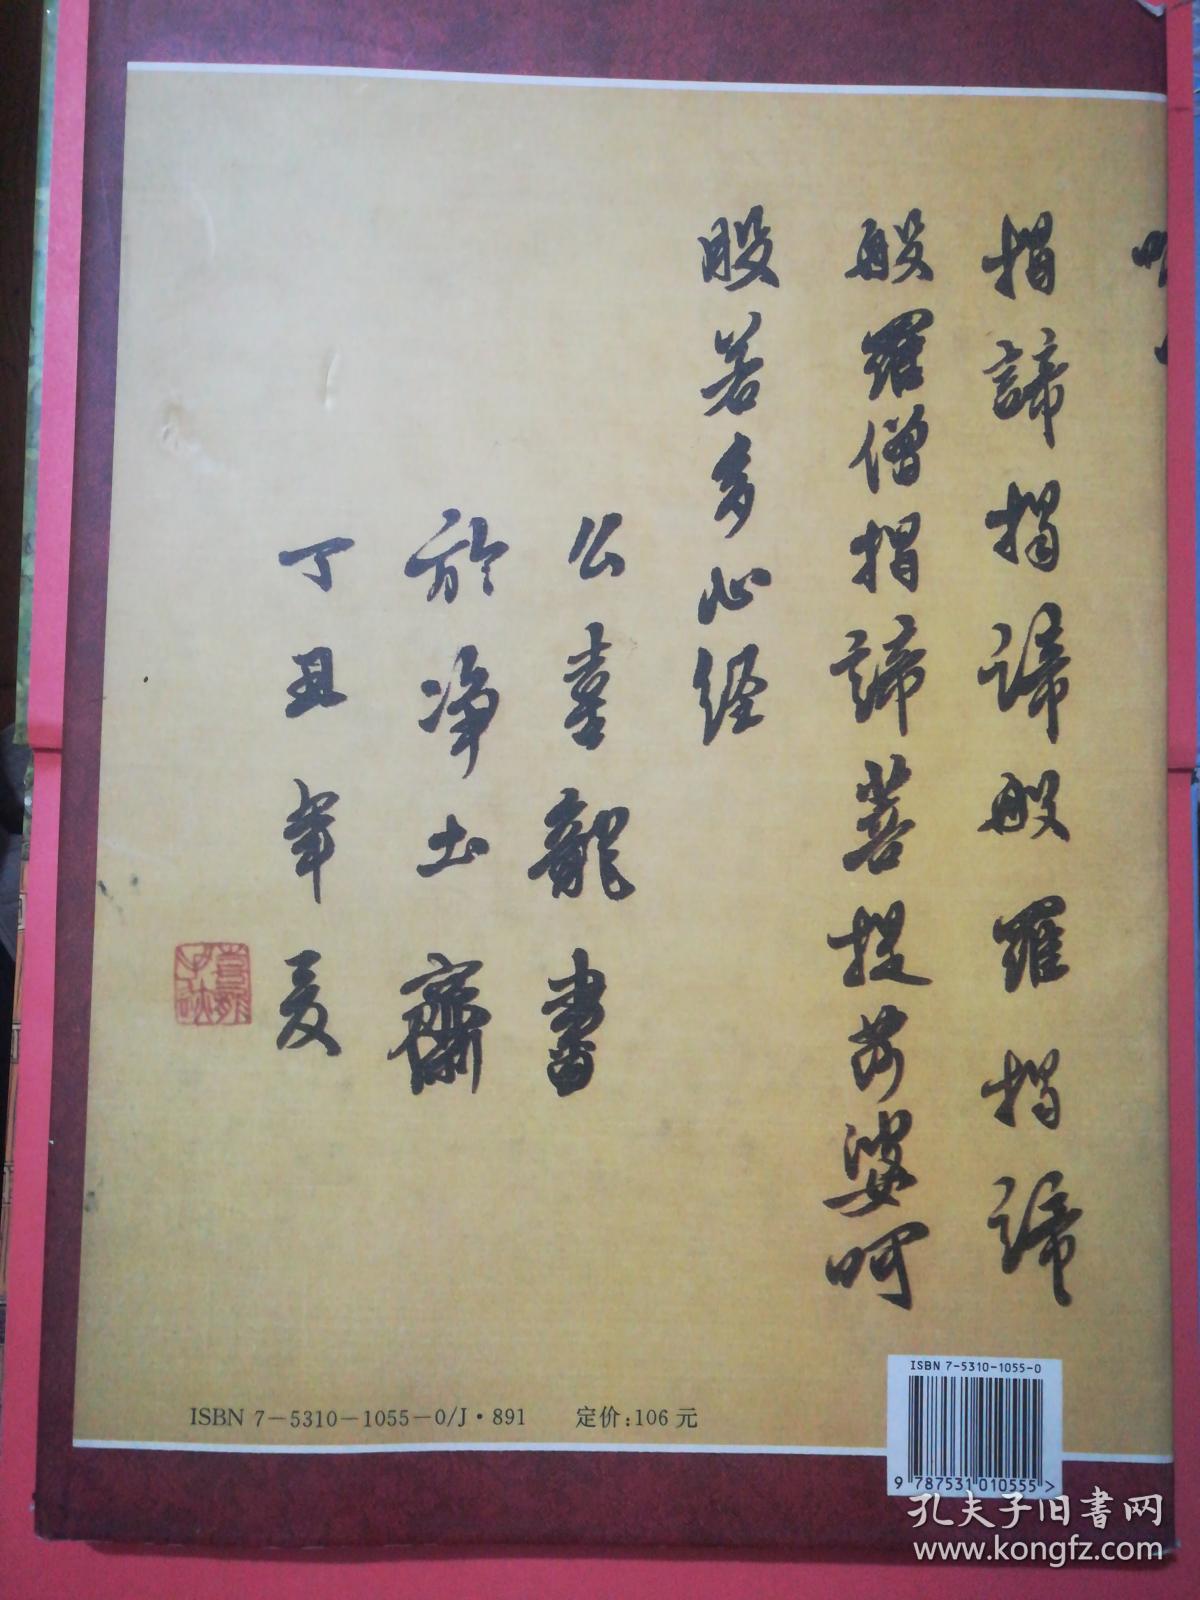 揭諦揭諦般羅揭諦
般羅僧揭諦菩提莎婆呵
般若多心经
公喜龍書
於净土齋
丁丑年夏
ISBN 7-5310-1055-0/J·891 定价:106元
ISBN 7-5310-1055-0
9 787531 010555 >
孔夫子旧书网
www.kongfz.com